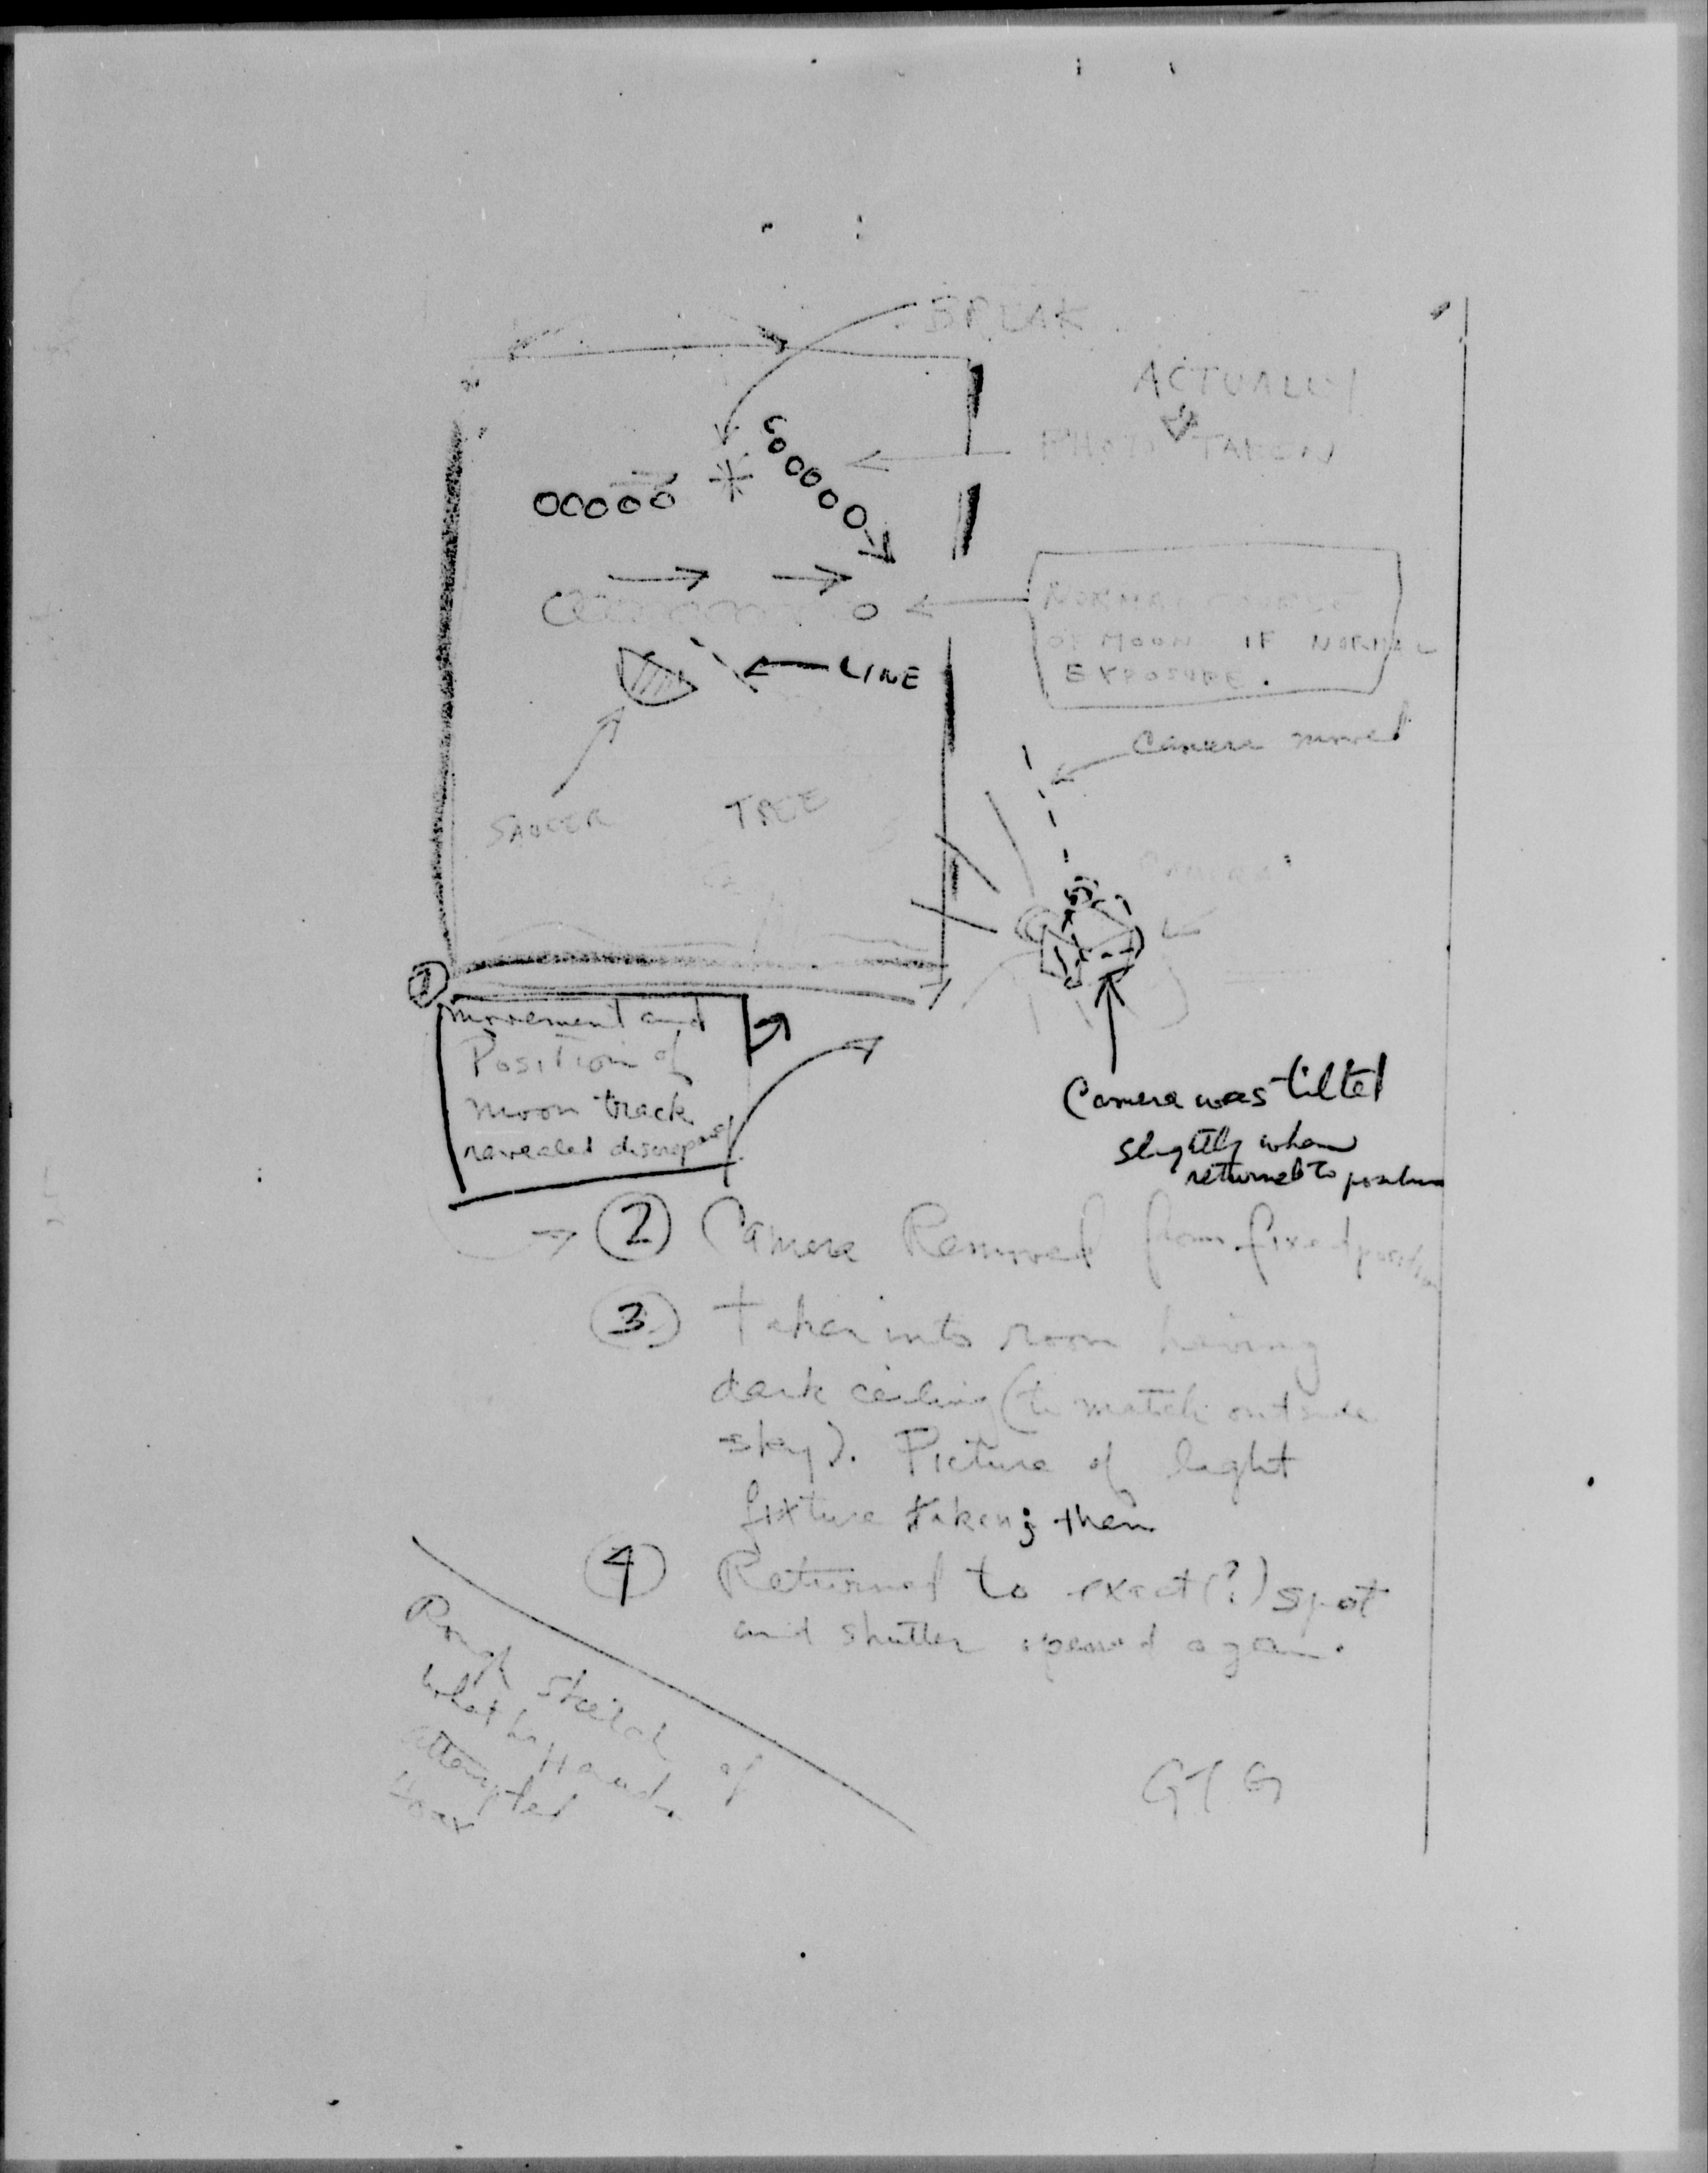 BREAK
ACTUALLY
PHOTO TAKEN
NORMAL COURSE
OF MOON IF NORMAL
EXPOSURE.
LINE
Camera moved
SAUCER
TREE
1
movement and
Position of
moon track
revealed discrepancy
Camera was tilted
slightly when
returned to position
2 Camera Removed from fixed position
3 Taken into room having
dark ceiling (to match outside
sky). Picture of light
fixture taken; then
4 Returned to exact(?) spot
and shutter opened again.
Rough sketch of
what happened.
attempted
Hoax
GTG